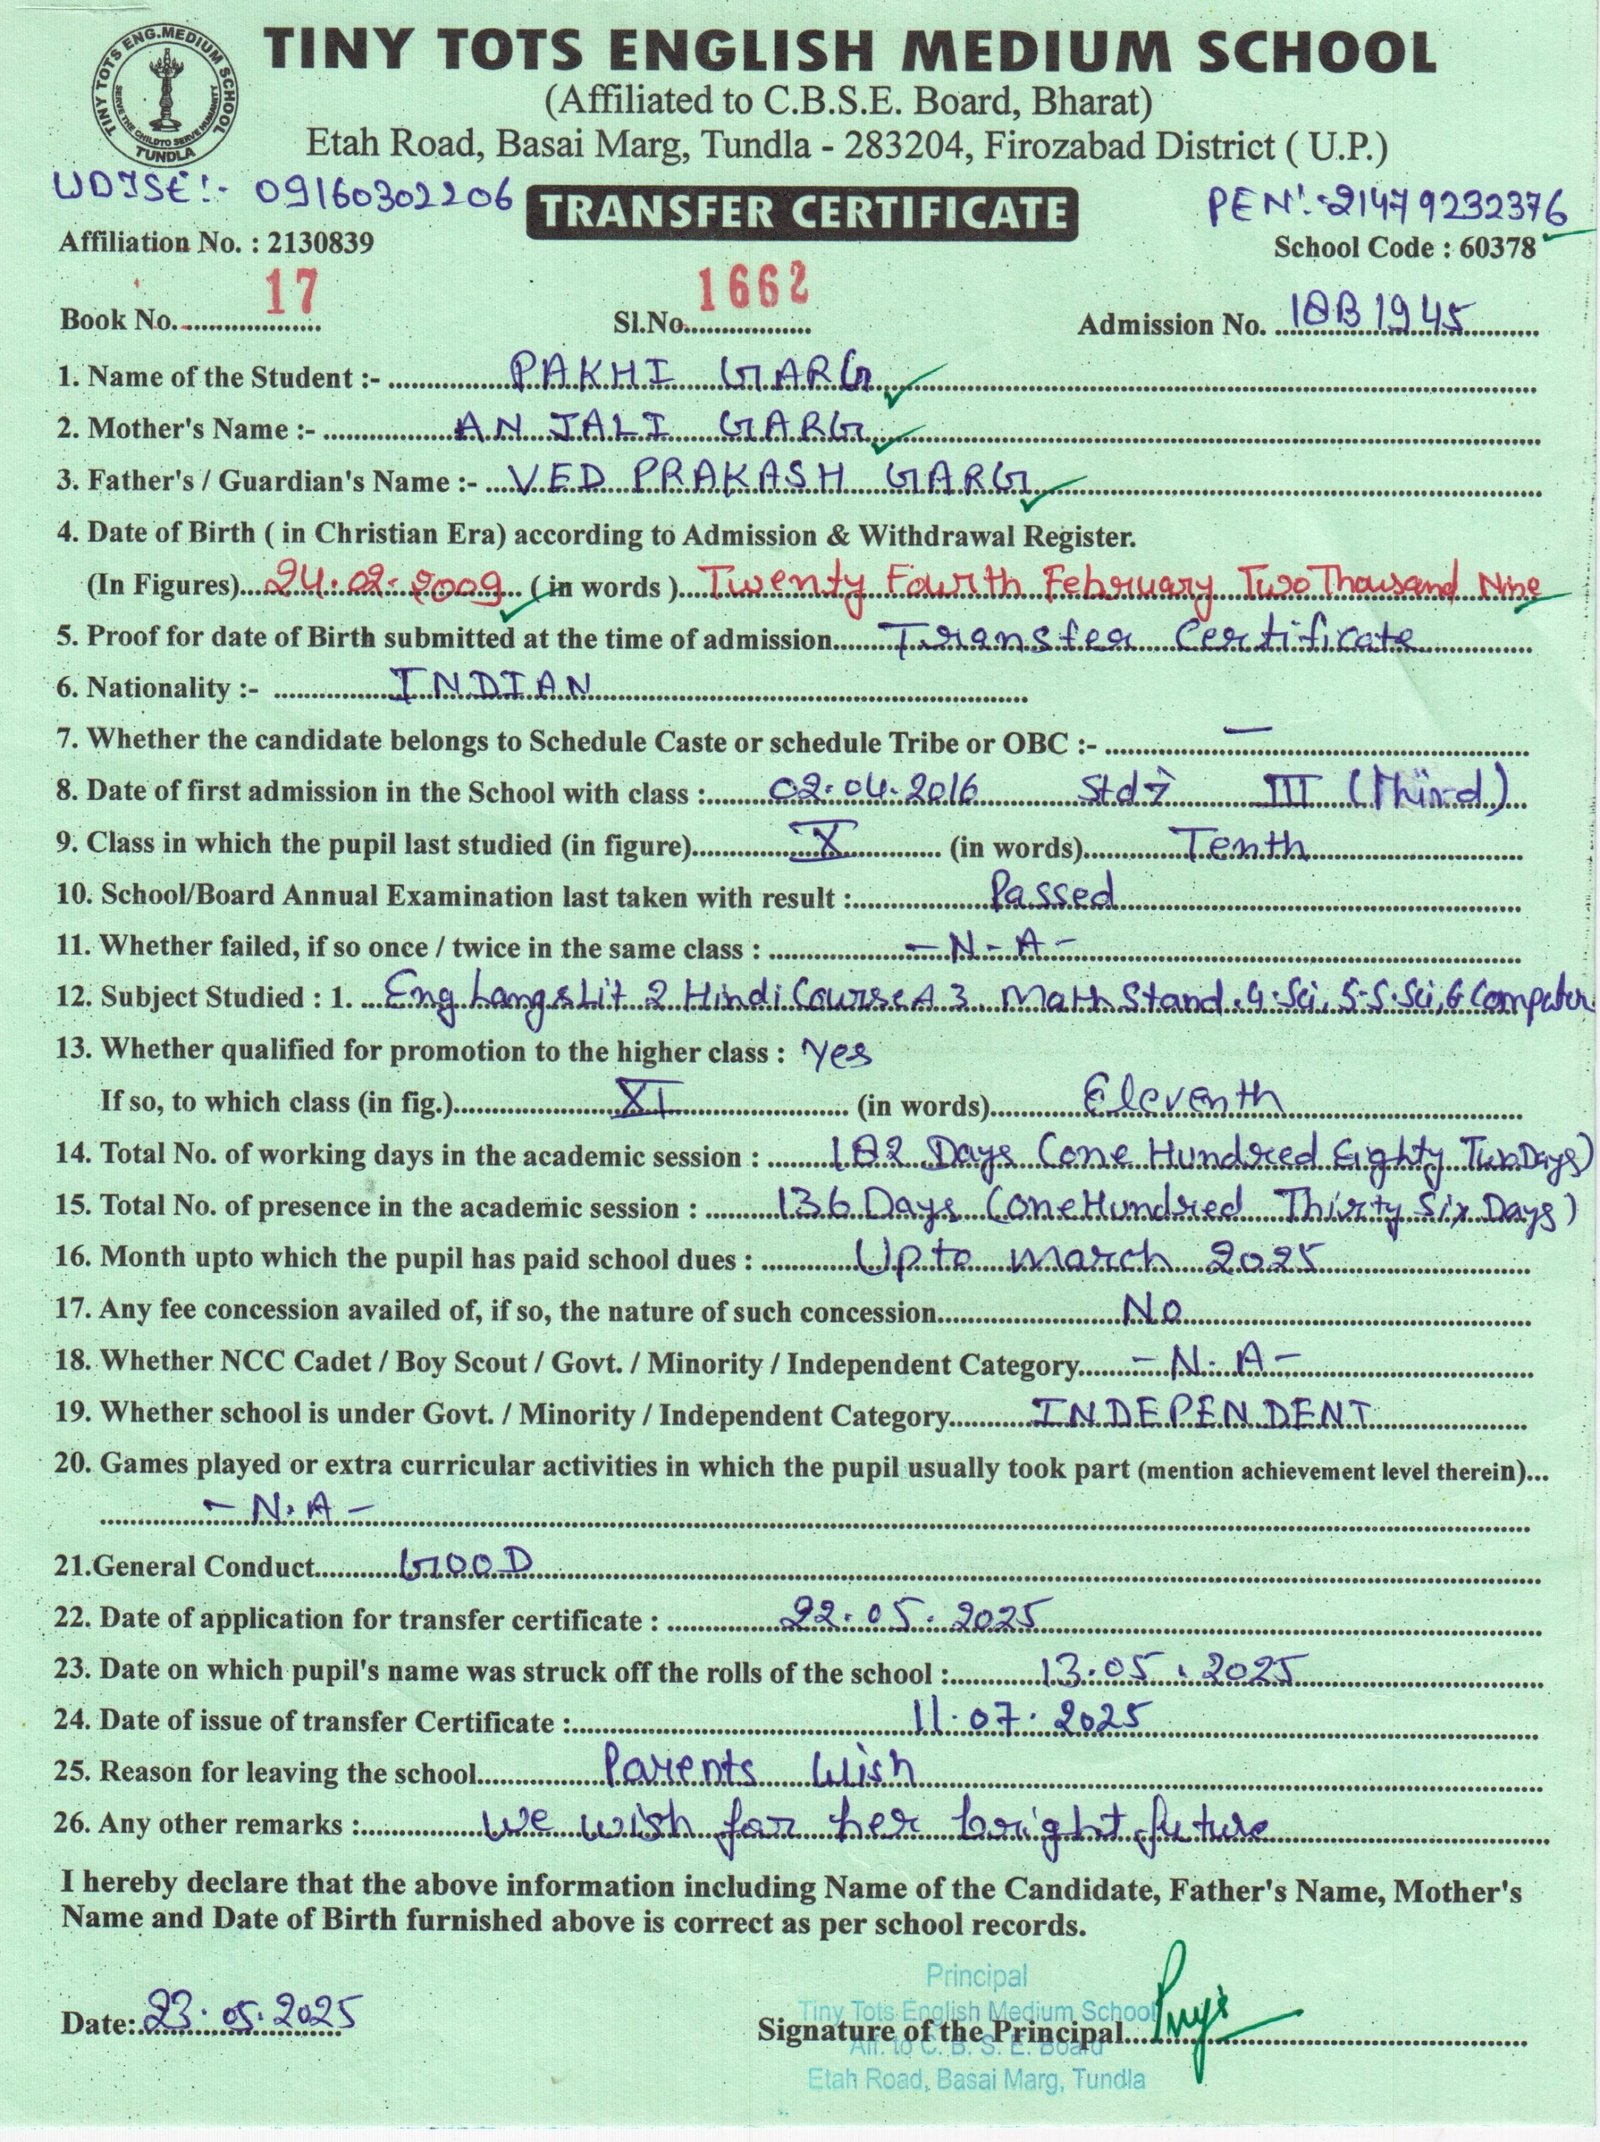 TINY TOTS ENG.MEDIUM SCHOOL
SERVE THE CHILD TO SERVE HUMANITY
TUNDLA
TINY TOTS ENGLISH MEDIUM SCHOOL
(Affiliated to C.B.S.E. Board, Bharat)
Etah Road, Basai Marg, Tundla - 283204, Firozabad District ( U.P.)
UDISE:- 09160302206
TRANSFER CERTIFICATE
PEN:-21479232376
Affiliation No. : 2130839
School Code : 60378
Book No. 17
Sl.No. 1662
Admission No. 18B1945
1. Name of the Student :- PAKHI GARG
2. Mother's Name :- ANJALI GARG
3. Father's / Guardian's Name :- VED PRAKASH GARG
4. Date of Birth ( in Christian Era) according to Admission & Withdrawal Register.
(In Figures) 24.02.2009 ( in words ) Twenty Fourth February Two Thousand Nine
5. Proof for date of Birth submitted at the time of admission Transfer Certificate
6. Nationality :- INDIAN
7. Whether the candidate belongs to Schedule Caste or schedule Tribe or OBC :- —
8. Date of first admission in the School with class : 02.04.2016 Std→ III (Third)
9. Class in which the pupil last studied (in figure) X (in words) Tenth
10. School/Board Annual Examination last taken with result : Passed
11. Whether failed, if so once / twice in the same class : -N-A-
12. Subject Studied : 1. Eng Lang & Lit 2 Hindi Course A 3 Math Stand. 4. Sci, 5-S.Sci, 6 Computer
13. Whether qualified for promotion to the higher class : Yes
If so, to which class (in fig.) XI (in words) Eleventh
14. Total No. of working days in the academic session : 182 Days (One Hundred Eighty Two Days)
15. Total No. of presence in the academic session : 136 Days (One Hundred Thirty Six Days)
16. Month upto which the pupil has paid school dues : Upto March 2025
17. Any fee concession availed of, if so, the nature of such concession No
18. Whether NCC Cadet / Boy Scout / Govt. / Minority / Independent Category -N.A-
19. Whether school is under Govt. / Minority / Independent Category INDEPENDENT
20. Games played or extra curricular activities in which the pupil usually took part (mention achievement level therein)...
-N.A-
21.General Conduct GOOD
22. Date of application for transfer certificate : 22.05.2025
23. Date on which pupil's name was struck off the rolls of the school : 13.05.2025
24. Date of issue of transfer Certificate : 11.07.2025
25. Reason for leaving the school Parents Wish
26. Any other remarks : We wish for her bright future
I hereby declare that the above information including Name of the Candidate, Father's Name, Mother's
Name and Date of Birth furnished above is correct as per school records.
Principal
Tiny Tots English Medium School
Date: 23.05.2025
Signature of the Principal
Aff. to C. B. S. E. Board
Etah Road, Basai Marg, Tundla